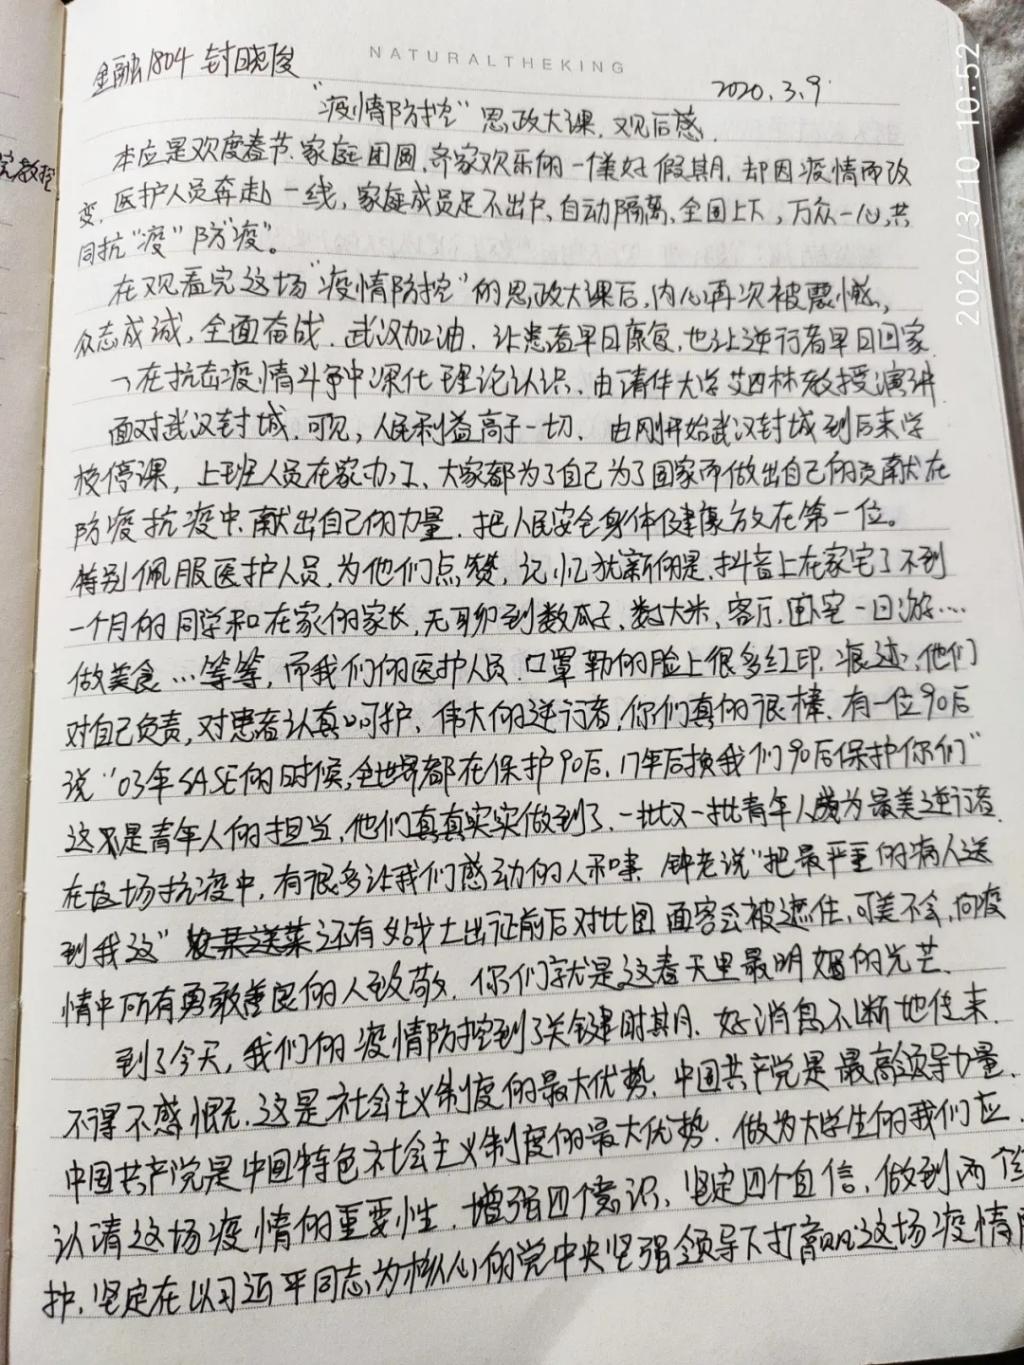 NATURALTHEKING
金融1804 封晓俊
2020.3.9
2020/3/10 10:52
"疫情防控"思政大课,观后感.
本应是欢度春节、家庭团圆,齐家欢乐的一美好假期,却因疫情而改
变.医护人员奔赴一线,家庭成员足不出户,自动隔离,全国上下,万众一心,共
同抗"疫"防"疫"。
在观看完这场"疫情防控"的思政大课后,内心再次被震憾,
众志成诚,全面奋战.武汉加油.让患者早日康复,也让逆行者早日回家.
一在抗击疫情斗争中深化理论认识.由清华大学艾四林教授演讲
面对武汉封城.可见,人民利益高于一切、由刚开始武汉封城到后来学
校停课,上班人员在家办工、大家都为了自己为了国家而做出自己的贡献在
防疫抗疫中、献出自己的力量.把人民安全身体健康放在第一位。
特别佩服医护人员,为他们点赞,记忆犹新的是,抖音上在家宅了不到
一个月的同学和在家的家长,无聊到数瓜子、数大米、客厅.卧室一日游....
做美食...等等,而我们的医护人员.口罩勒的脸上很多红印.痕迹,他们
对自己负责,对患者认真呵护、伟大的逆行者,你们真的很棒.有一位90后
说"03年SASE的时候,全世界都在保护90后,17年后换我们90后保护你们"
这是青年人的担当,他们真真实实做到了.一批又一批青年人成为最美逆行者.
在这场抗疫中,有很多让我们感动的人和事 钟老说"把最严重的病人送
到我这" 还有女战士出征前后对比图 面容会被遮住,可美不会,向疫
情中所有勇敢善良的人致敬.你们就是这春天里最明媚的光芒.
到了今天,我们的疫情防控到了关键时期、好消息不断地传来.
不得不感慨,这是社会主义制度的最大优势、中国共产党是最高领导力量.
中国共产党是中国特色社会主义制度的最大优势.做为大学生的我们应.
认清这场疫情的重要性.增强四个意识、坚定四个自信、做到两个
护.坚定在以习近平同志为核心的党中央坚强领导下打赢这场疫情